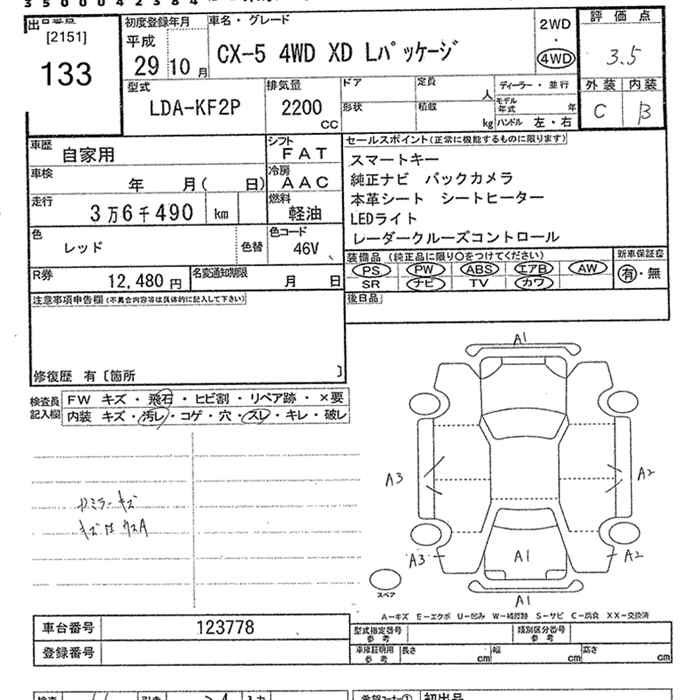 35000423
[2151]
133
初度登録年月
平成
29 10 月
車名・グレード
CX-5 4WD XD Lパッケージ
2WD
4WD
評価点
3.5
外装 内装
C B
型式
LDA-KF2P
排気量
2200
CC
ドア
定員
人
形状
積載
kg
ディーラー・並行
モデル年式 年
ハンドル 左・右
車歴
自家用
シフト
FAT
車検
年 月( 日)
冷房
AAC
走行
3万6千490 km
燃料
軽油
色
レッド
色替
色コード
46V
R券
12,480 円
名変通知期限
月 日
セールスポイント(正常に機能するものに限ります)
スマートキー
純正ナビ バックカメラ
本革シート シートヒーター
LEDライト
レーダークルーズコントロール
装備品(純正品に限り○をつけてください)
PS PW ABS エアB AW
SR ナビ TV カワ
新車保証書
有・無
後日品
注意事項申告欄(不具合内容等は具体的に記入して下さい)
修復歴 有〔箇所 〕
検査員記入欄
FW キズ・飛石・ヒビ割・リペア跡・×要
内装 キズ・汚レ・コゲ・穴・スレ・キレ・破レ
A1
A3
A2
A3
A1
A2
A1
スペア
A－キズ E－エクボ U－凹み W－補修跡 S－サビ C－腐食 XX－交換済
車台番号
123778
登録番号
型式指定番号
参考
類別区分番号
参考
車庫証明用
参考
長さ cm
幅 cm
高さ cm